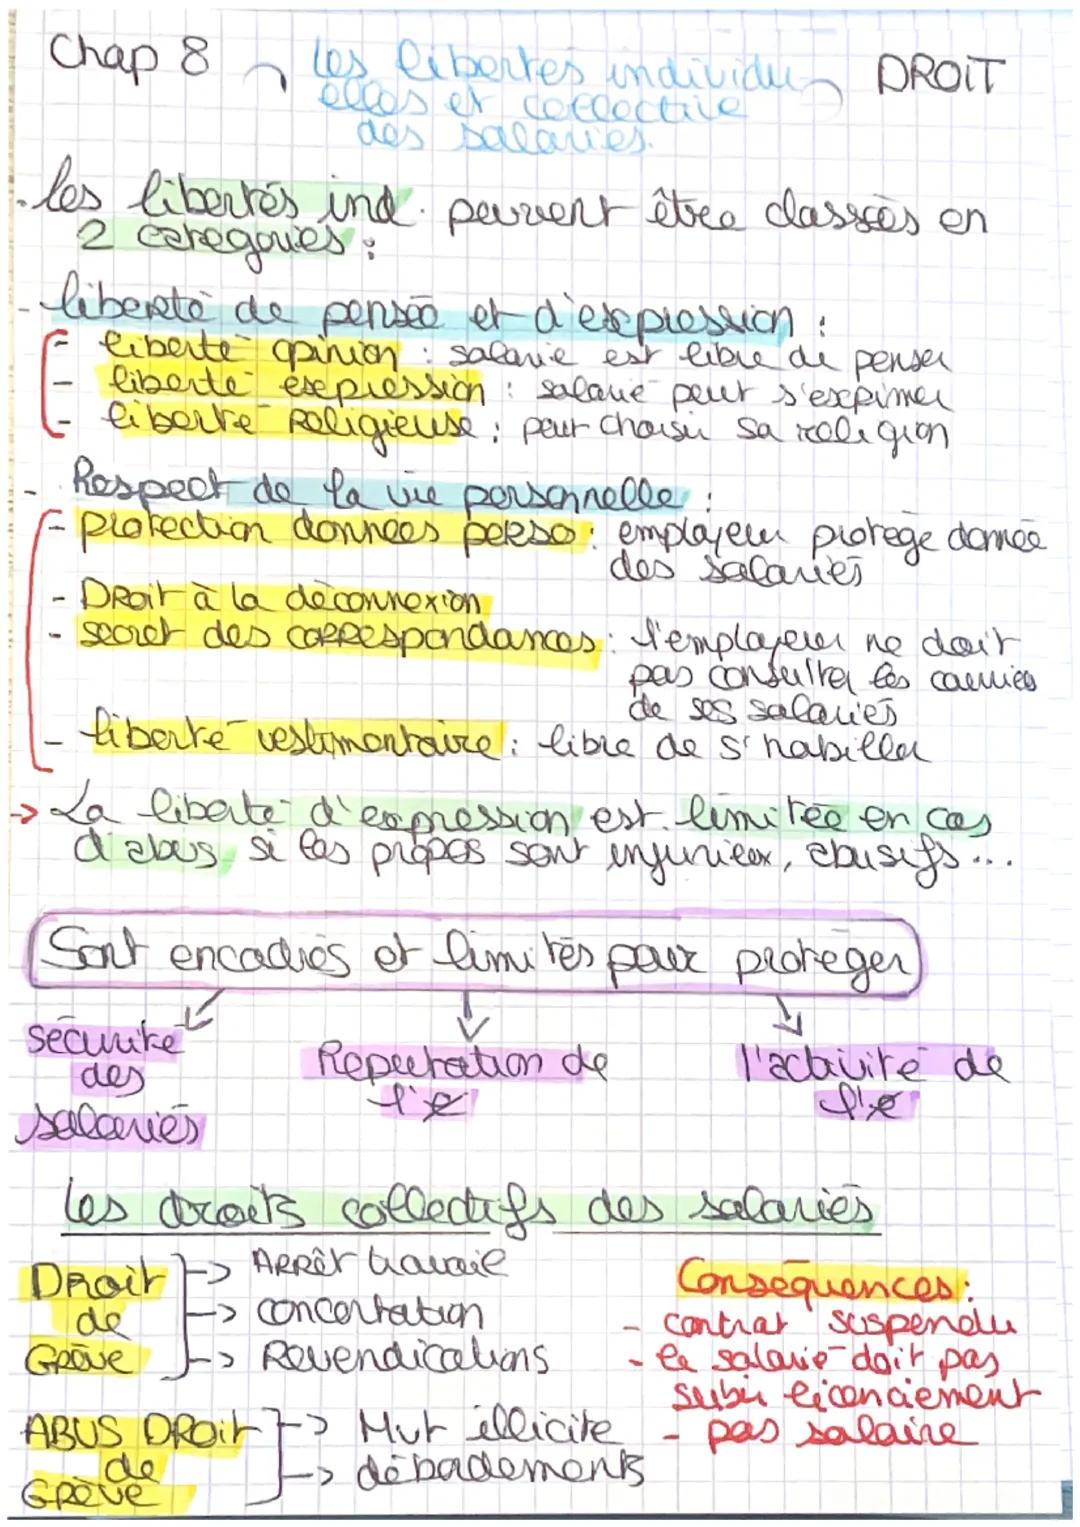 Chap 8
Les libertés individu-
elles et collective
des salariés.
DROIT
. les libertés ind. peuvent être classés en
2 categories :
- liberté de pensée et d'expression :
- liberté opinion : salarié est libre de penser
- liberté expression : salarié peut s'exprimer
- liberté Religieuse : peut choisir sa religion
- Respect de la vie personnelle :
- protection données perso : employeur protège donnée
des salariés
- DRoit à la déconnexion
- secret des correspondances : l'employeur ne doit
pas consulter les courriers
de ses salariés
- liberté vestimentaire : libre de s'habiller
-> La liberté d'expression est limitée en cas
d'abus, si les propos sont injurieux, abusifs ...
Sont encadrés et limités pour protéger
sécurité
des
salariés
Reputation de
l'e
l'activité de
l'e
Les droits collectifs des salariés
DRoit
de
Grève
-> ARRêt travail
-> concertation
-> Revendications
Conséquences :
- contrat suspendu
- le salarié doit pas
subir licenciement
- pas salaire
ABUS DROit
de
GRève
-> Mvt illicite
-> débordements